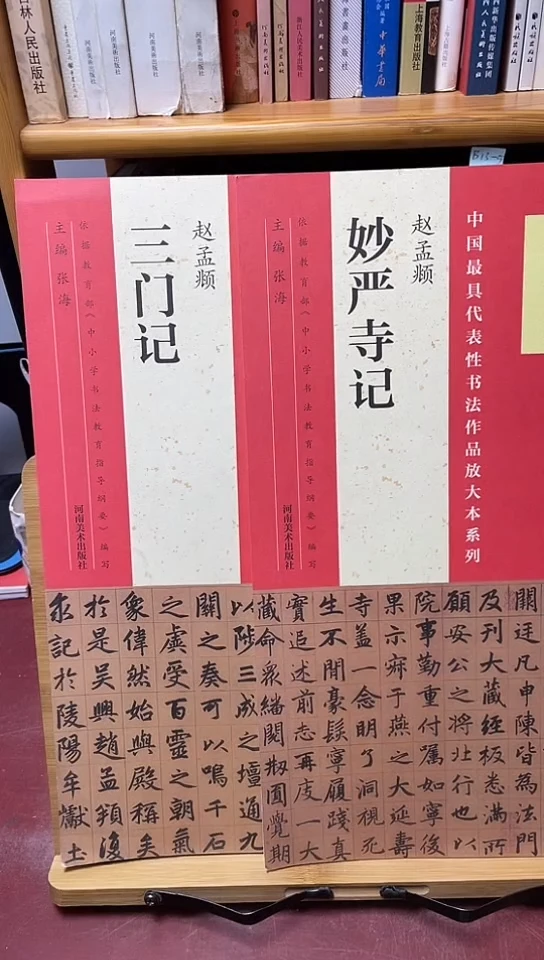 吉林人民出版社
河南美术出版社
河南美术出版社
河南美术出版社
中华书局
上海教育出版社
赵孟頫
三门记
依据教育部《中小学书法教育指导纲要》编写
主编 张海
河南美术出版社
以陟三成之壇通九
關之奏可以鳴千石
之虡受百靈之朝氣
衆偉然始與殿稱矣
於是吳興趙孟頫復
求記於陵陽牟巘土
中国最具代表性书法作品放大本系列
赵孟頫
妙严寺记
依据教育部《中小学书法教育指导纲要》编写
主编 张海
河南美术出版社
關迋凡申陳皆為法門
及刊大藏經板悉滿所
願安公之將北行也以
院事勤重付囑如寧後
果示寂于燕之大延壽
寺蓋一念明了洞視死
生不間豪髮寧履踐真
實追述前志再度一大
藏命衆繙閱扨圓覺期